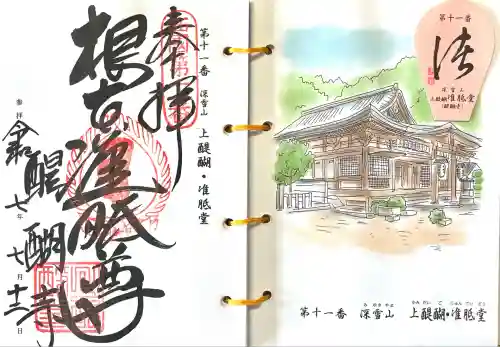 奉拝
第十一番 深雪山 上醍醐・准胝堂
根本准胝尊
醍醐寺
参拝 令和七年 七月 十三日
第十一番
深雪山
上醍醐准胝堂
(醍醐寺)
第十一番 深雪山 上醍醐・准胝堂
み ゆき やま
かみ だい ご じゅん てい どう